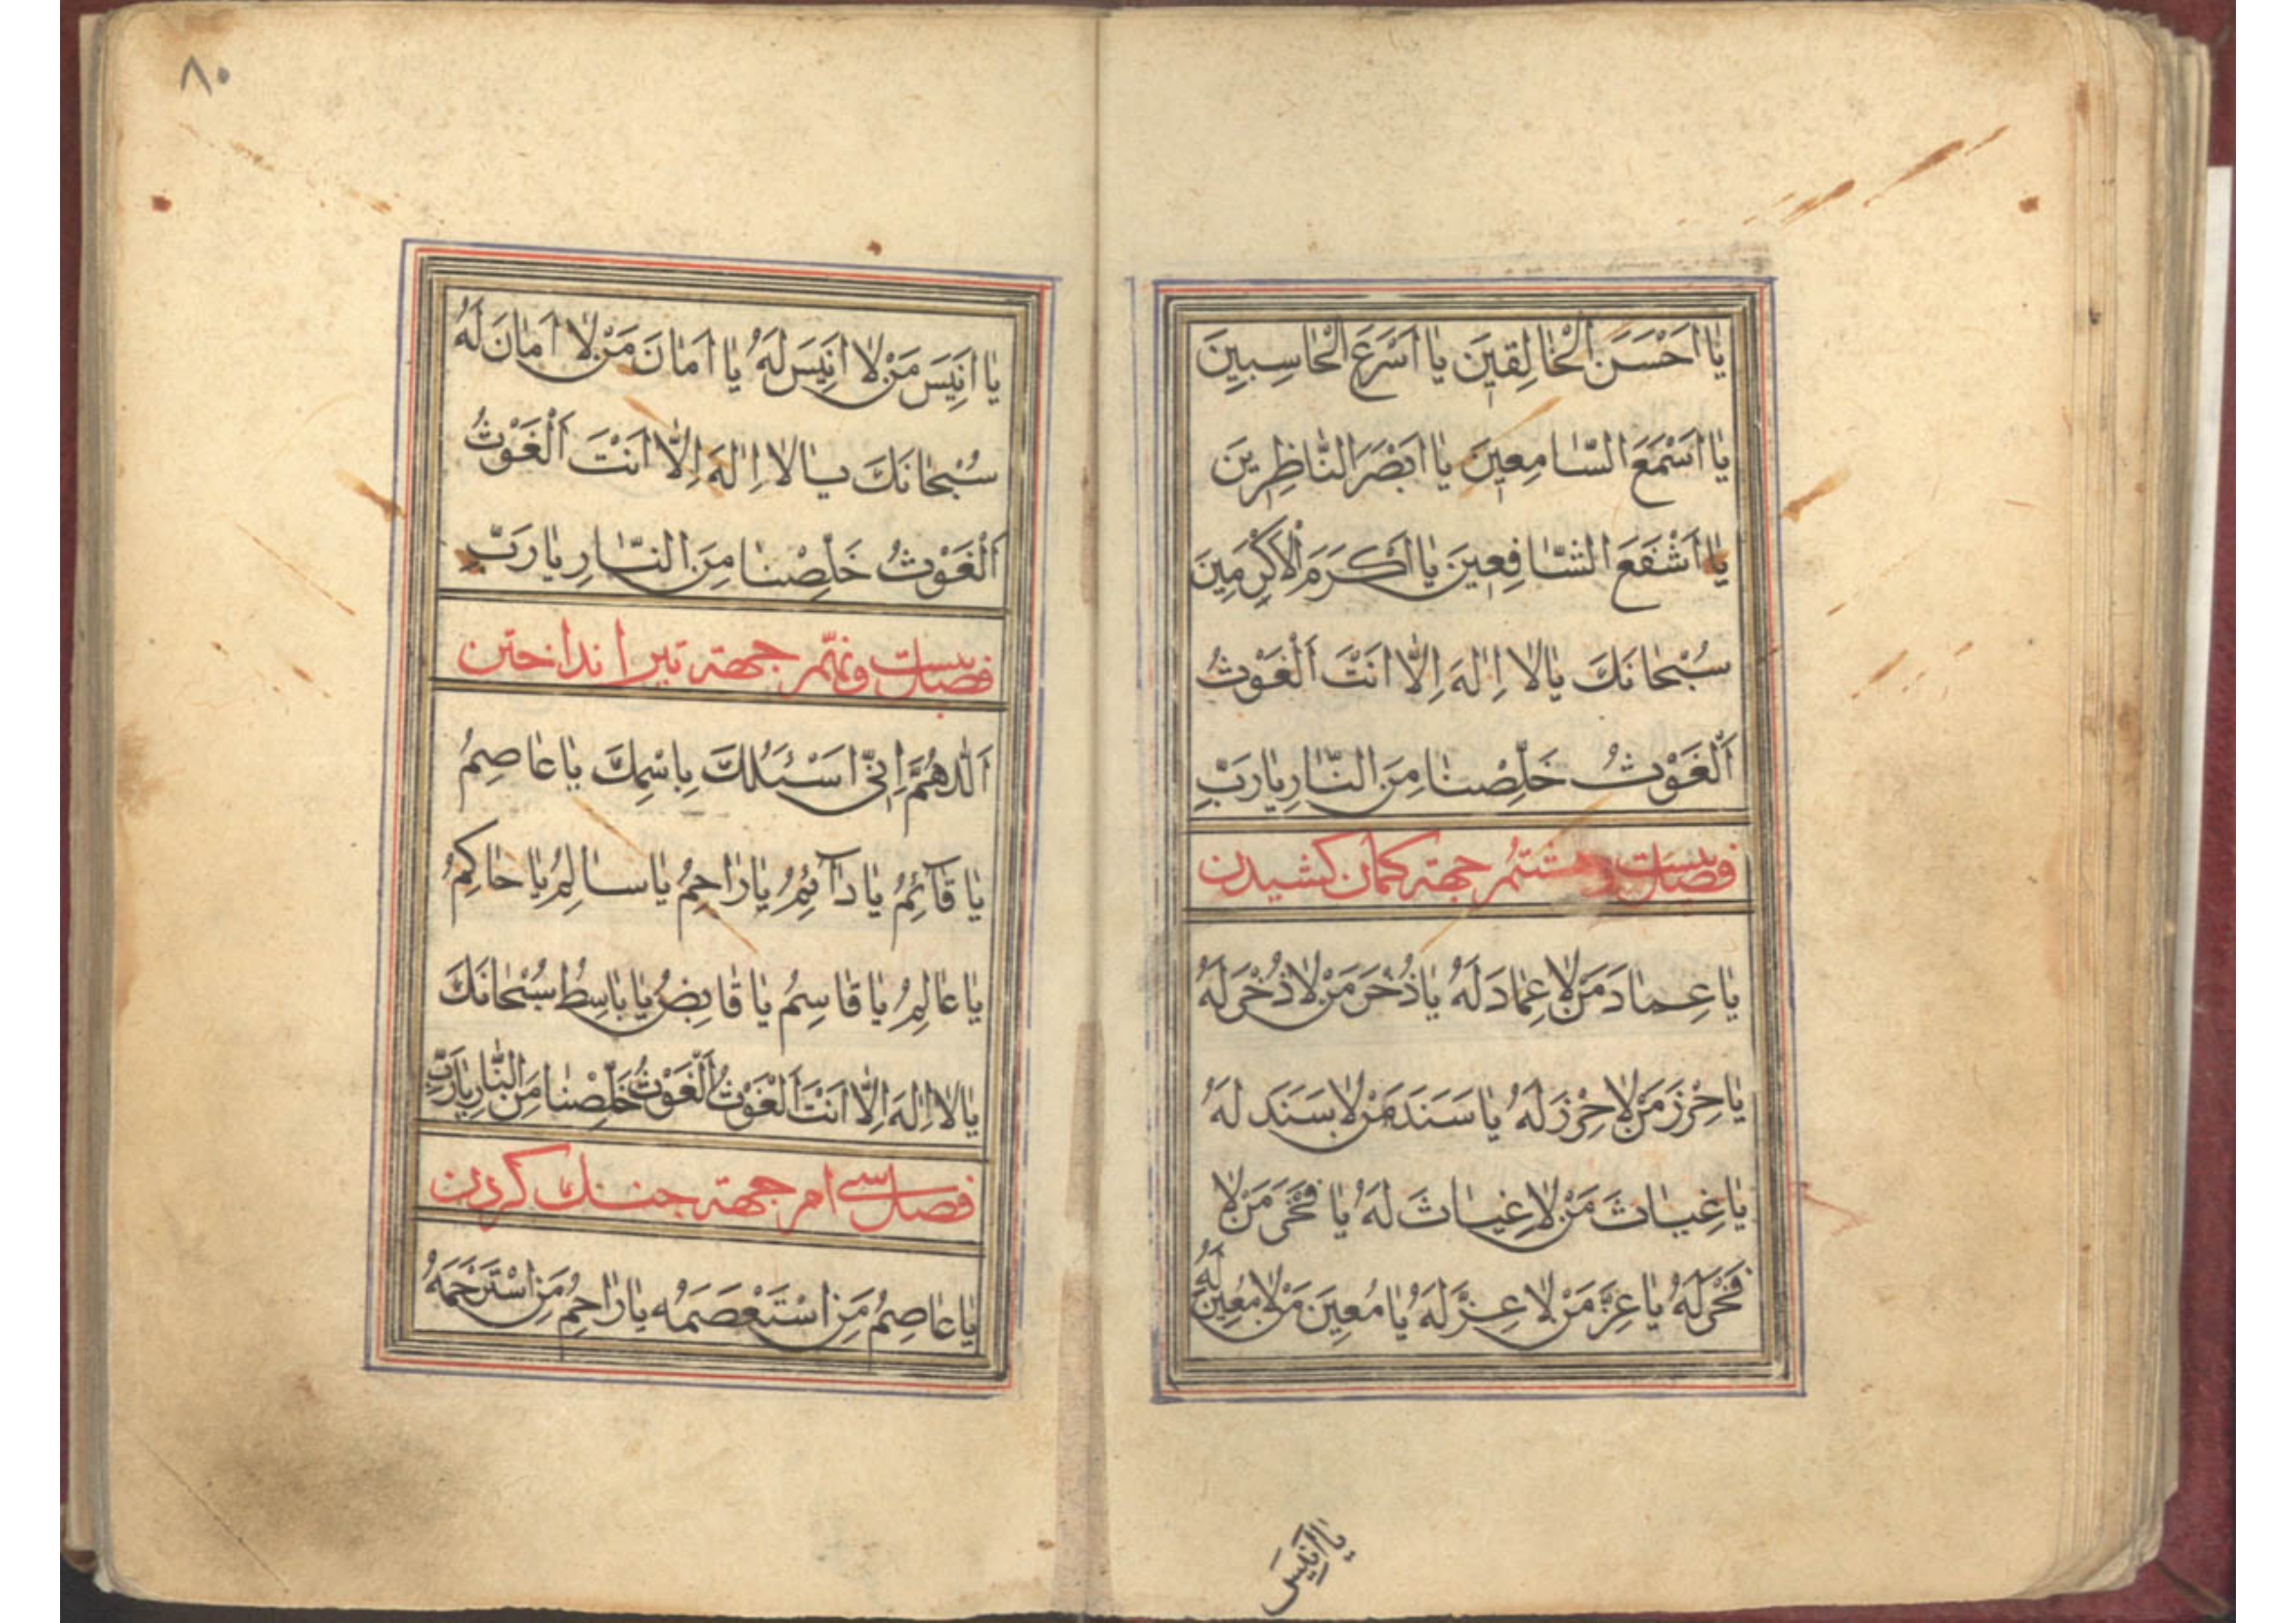 يٰا اَحْسَنَ الْخٰالِقينَ يٰا اَسْرَعَ الْحٰاسِبينَ
يٰا اَسْمَعَ السّٰامِعينَ يٰا اَبْصَرَ النّٰاظِرينَ
يٰا اَشْفَعَ الشّٰافِعينَ يٰا اَكْرَمَ الْاَكْرَمينَ
سُبْحٰانَكَ يٰا لا اِلٰهَ اِلّٰا اَنْتَ اَلْغَوْثُ
اَلْغَوْثُ خَلِّصْنٰا مِنَ النّٰارِ يٰا رَبِّ
فصل بیست و هشتم جهته کمان کشیدن
يٰا عِمٰادَ مَنْ لاٰ عِمٰادَ لَهُ يٰا ذُخْرَ مَنْ لاٰ ذُخْرَ لَهُ
يٰا حِرْزَ مَنْ لاٰ حِرْزَ لَهُ يٰا سَنَدَ مَنْ لاٰ سَنَدَ لَهُ
يٰا غِيٰاثَ مَنْ لاٰ غِيٰاثَ لَهُ يٰا فَخْرَ مَنْ لاٰ
فَخْرَ لَهُ يٰا عِزَّ مَنْ لاٰ عِزَّ لَهُ يٰا مُعِينَ مَنْ لاٰ مُعِينَ لَهُ
يٰا اَنِيسَ
٨٠
يٰا اَنِيسَ مَنْ لاٰ اَنِيسَ لَهُ يٰا اَمٰانَ مَنْ لاٰ اَمٰانَ لَهُ
سُبْحٰانَكَ يٰا لا اِلٰهَ اِلّٰا اَنْتَ اَلْغَوْثُ
اَلْغَوْثُ خَلِّصْنٰا مِنَ النّٰارِ يٰا رَبِّ
فصل بیست و نهم جهته تیر انداختن
اَللّٰهُمَّ اِنّي اَسْئَلُكَ بِاسْمِكَ يٰا عٰاصِمُ
يٰا قٰآئِمُ يٰا دٰآئِمُ يٰا رٰاحِمُ يٰا سٰالِمُ يٰا حٰاكِمُ
يٰا عٰالِمُ يٰا قٰاسِمُ يٰا قٰابِضُ يٰا بٰاسِطُ سُبْحٰانَكَ
يٰا لا اِلٰهَ اِلّٰا اَنْتَ اَلْغَوْثُ اَلْغَوْثُ خَلِّصْنٰا مِنَ النّٰارِ يٰا رَبِّ
فصل سی ام جهته جنک کردن
يٰا عٰاصِمُ مَنِ اسْتَعْصَمَهُ يٰا رٰاحِمُ مَنِ اسْتَرْحَمَهُ